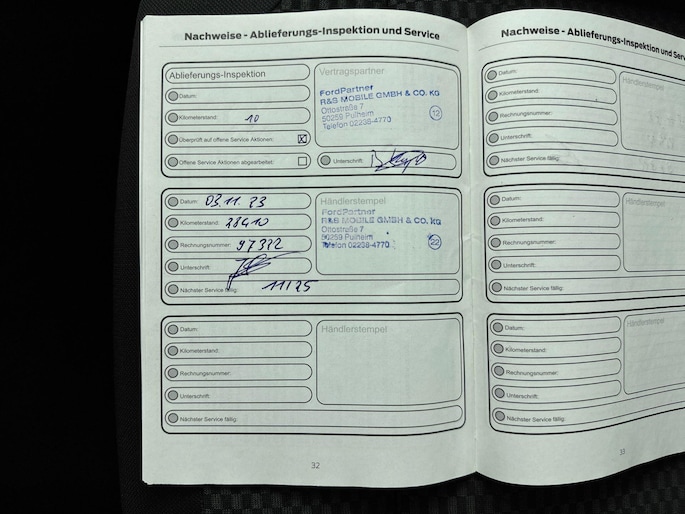 Nachweise - Ablieferungs-Inspektion und Service
Ablieferungs-Inspektion
Datum:
Kilometerstand: 10
Überprüft auf offene Service Aktionen: X
Offene Service Aktionen abgearbeitet:
Vertragspartner
FordPartner
R&S MOBILE GMBH & CO. KG
Ottostraße 7
50259 Pulheim
Telefon 02238-4770
12
Unterschrift:
Datum: 03.11.23
Kilometerstand: 28410
Rechnungsnummer: 97322
Unterschrift:
Nächster Service fällig: 11/25
Händlerstempel
FordPartner
R&S MOBILE GMBH & CO. KG
Ottostraße 7
50259 Pulheim
Telefon 02238-4770
22
Datum:
Kilometerstand:
Rechnungsnummer:
Unterschrift:
Nächster Service fällig:
Händlerstempel
32
Nachweise - Ablieferungs-Inspektion und
Datum:
Kilometerstand:
Rechnungsnummer:
Unterschrift:
Nächster Service fällig:
Händlerstempel
Datum:
Kilometerstand:
Rechnungsnummer:
Unterschrift:
Nächster Service fällig:
Händlerstempel
Datum:
Kilometerstand:
Rechnungsnummer:
Unterschrift:
Nächster Service fällig:
Händlerstempel
33